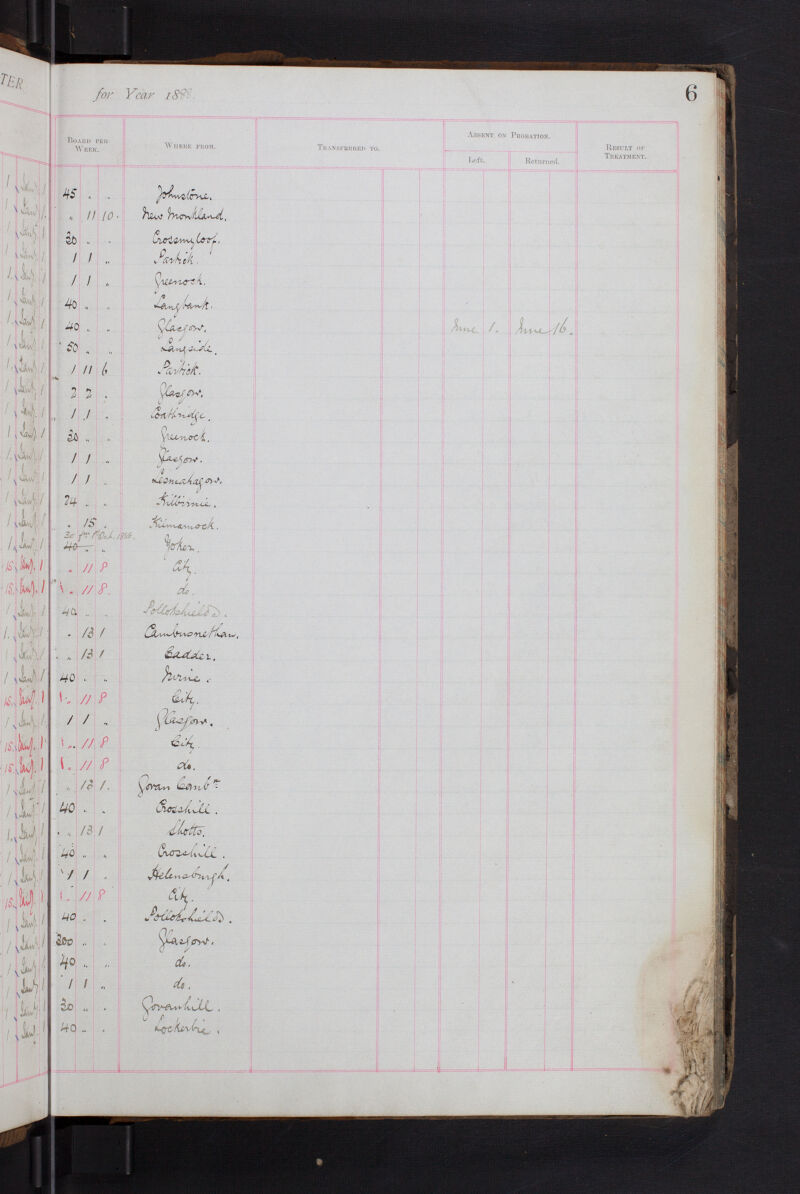 TER
for Year 1888.
6
BOARD PER WEEK.
WHERE FROM.
TRANSFERRED TO.
ABSENT ON PROBATION.
Left.
Returned.
RESULT OF TREATMENT.
45 . . Johnstone.
" 11 10. New Monkland.
30 . . Crossmyloof.
1 1 " Partick.
1 1 " Greenock.
40 " . Langbank.
40 . . Glasgow. June 1. June 16.
50 " " Langside.
1 11 6 Partick.
2 2 . Glasgow.
1 1 . Coatbridge.
30 " . Greenock.
1 1 " Glasgow.
1 1 . Lesmahagow.
24 . . Kilbirnie.
. 15 . Kilmarnock.
30 fm 1st Oct. 1888.
40 . " Yoker.
. 11 8 City.
. 11 8. do.
40 . . Pollokshields.
. 13 1 Cambusnethan.
. 13 1 Cadder.
40 . " Irvine.
. 11 8 City.
1 1 " Glasgow.
" 11 8 City.
. 11 8 do.
. 13 1. Govan Combn.
40 . . Crosshill.
. 13 1 Shotts.
40 . . Crosshill.
1 1 . Helensburgh.
. 11 8 City.
40 . . Pollokshields.
300 " . Glasgow.
40 " " do.
1 1 " do.
30 " . Govanhill.
40 " . Lockerbie.